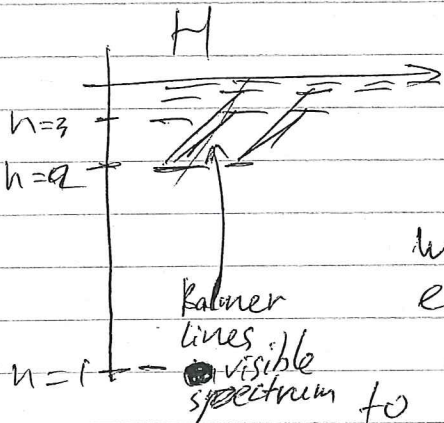 H
n=3
n=2
Balmer
lines
visible
n=1
spectrum
to